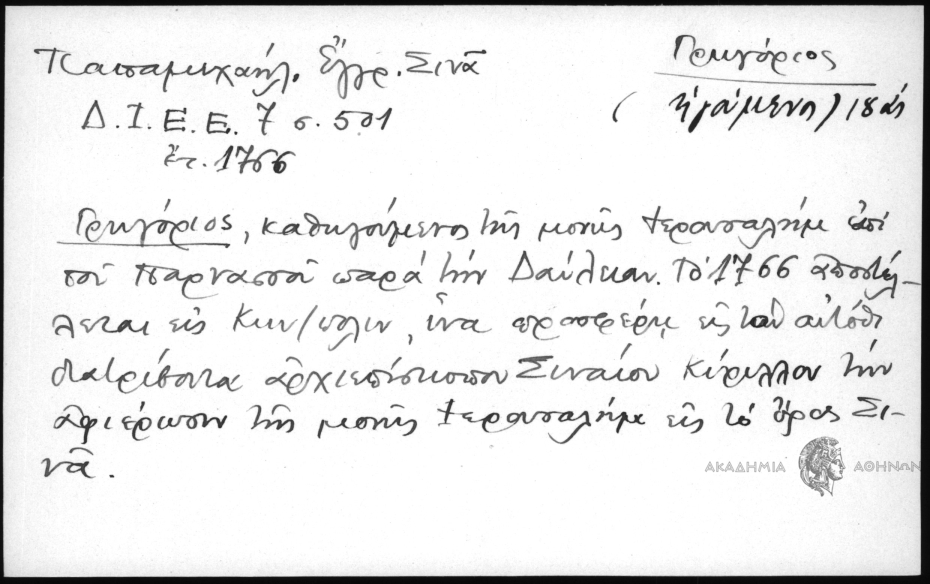 Παπαμιχαήλ. Ἔγγρ. Σινᾶ
Γρηγόριος
(ἡγούμενος) 18 ας
Δ. Ι. Ε. Ε. 7 σ. 501
ἔτ. 1766
Γρηγόριος, καθηγούμενος τῆς μονῆς Ἱερουσαλήμ ἐπί
τοῦ Παρνασσοῦ παρά τήν Δαύλειαν. Τό 1766 ἀποστέλ-
λεται εἰς Κων/πολιν, ἵνα προσφέρῃ εἰς τόν αὐτόθι
διατρίβοντα ἀρχιεπίσκοπον Σιναίου Κύριλλον τήν
ἀφιέρωσιν τῆς μονῆς Ἱερουσαλήμ εἰς τό ὄρος Σι-
νᾶ.
ΑΚΑΔΗΜΙΑ ΑΘΗΝΩΝ